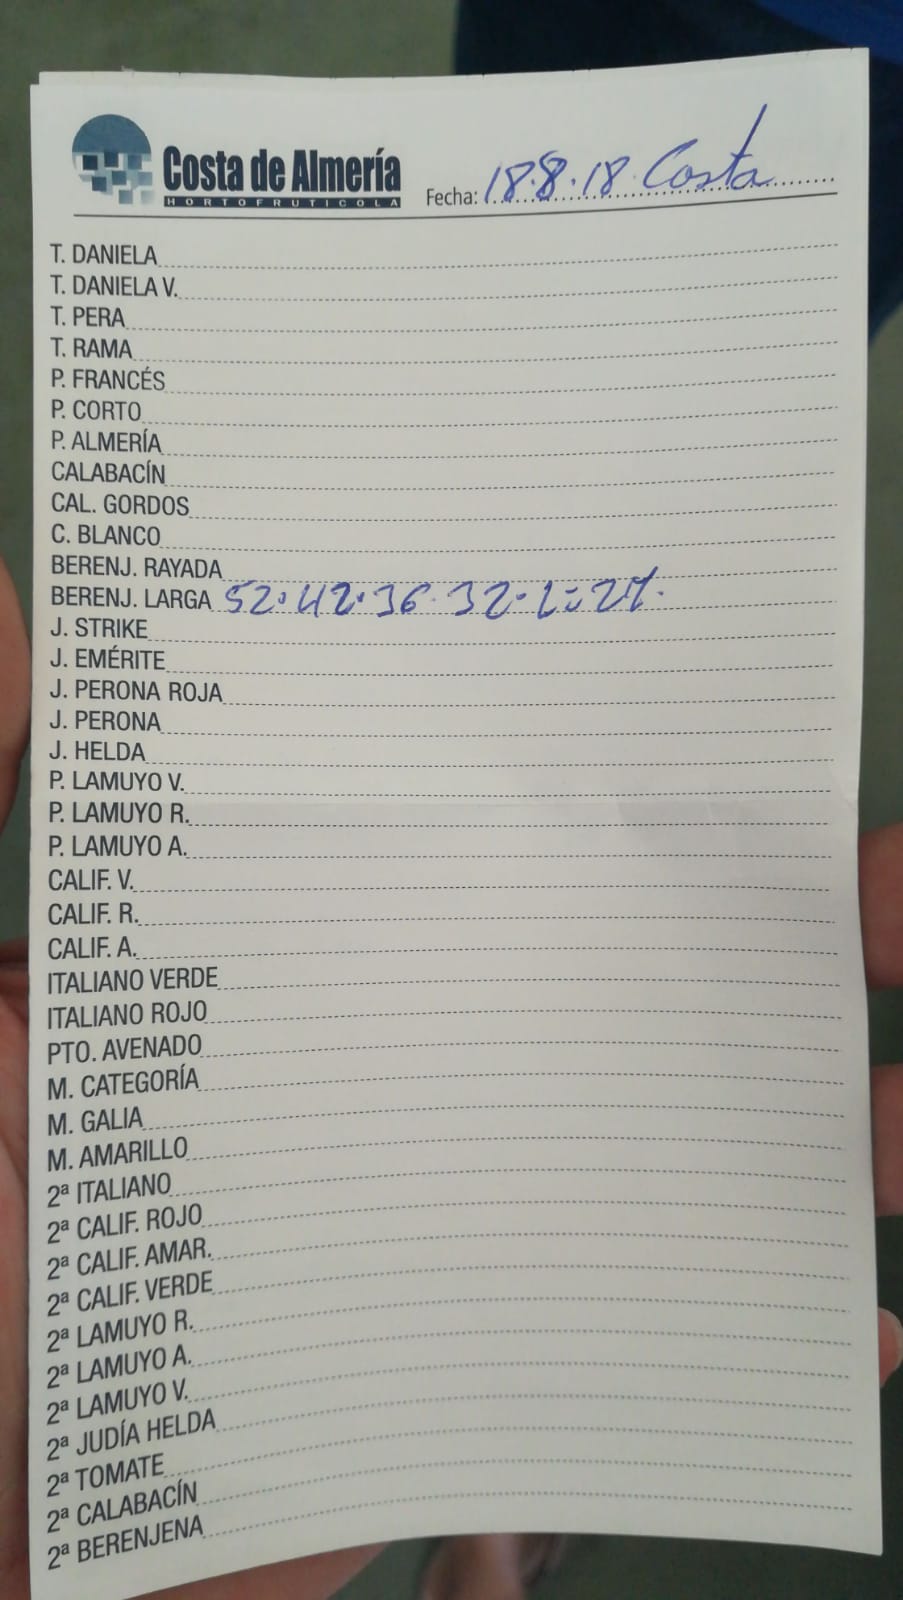 Costa de Almería
HORTOFRUTICOLA
Fecha: 18.8.18. Costa
T. DANIELA
T. DANIELA V.
T. PERA
T. RAMA
P. FRANCÉS
P. CORTO
P. ALMERÍA
CALABACÍN
CAL. GORDOS
C. BLANCO
BERENJ. RAYADA
BERENJ. LARGA 52. 42. 36. 32.
J. STRIKE
J. EMÉRITE
J. PERONA ROJA
J. PERONA
J. HELDA
P. LAMUYO V.
P. LAMUYO R.
P. LAMUYO A.
CALIF. V.
CALIF. R.
CALIF. A.
ITALIANO VERDE
ITALIANO ROJO
PTO. AVENADO
M. CATEGORÍA
M. GALIA
M. AMARILLO
2ª ITALIANO
2ª CALIF. ROJO
2ª CALIF. AMAR.
2ª CALIF. VERDE
2ª LAMUYO R.
2ª LAMUYO A.
2ª LAMUYO V.
2ª JUDÍA HELDA
2ª TOMATE
2ª CALABACÍN
2ª BERENJENA